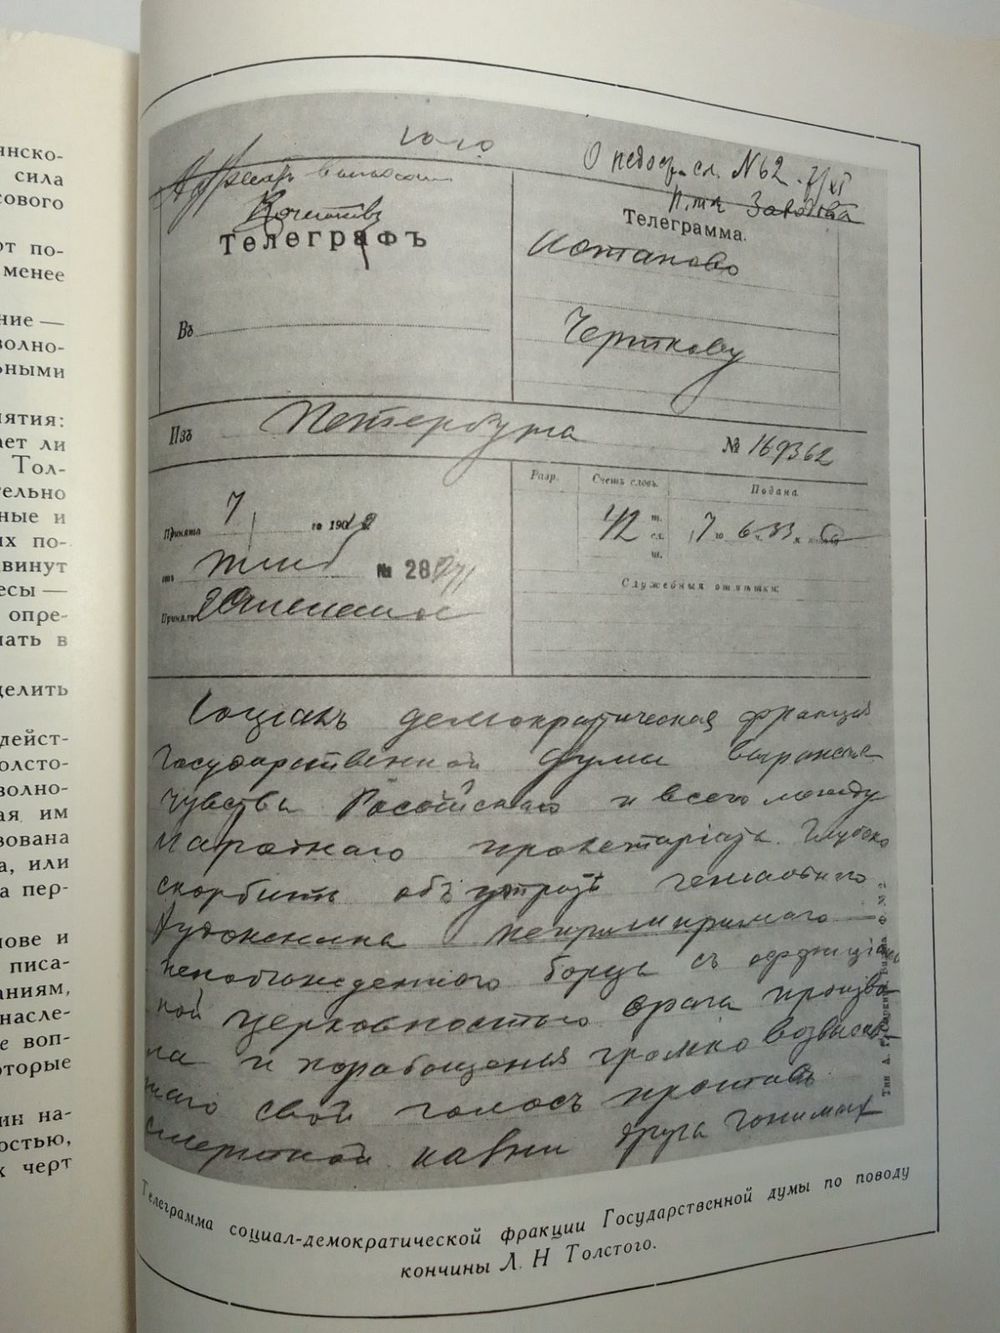 янско-
сила
сового
от по-
менее
ние —
волно-
ьными
иятия:
ает ли
Тол-
тельно
ные и
их по-
двинут
есы —
опре-
лать в
делить
дейст-
олсто-
волно-
ая им
зована
а, или
а пер-
нове и
писа-
аниям,
насле-
е воп-
оторые
ин на-
остью,
х черт
О недост. сл. №62. 7/XI
Телеграфъ
Въ
Телеграмма.
Астапово
Черткову
Изъ Петербурга № 169362
Разр. Счетъ словъ. Подана
42 т. сл. ш. 7 го 6 ч. 33 м.
Принята 7 го 1910
отъ № 28
Принялъ
Служебныя отмѣтки:
Соціалъ демократическая фракція
Государственной думы выражая
чувства Россійскаго и всего между
народнаго пролетаріата глубоко
скорбитъ объ утратѣ геніальнаго
художника непримиримаго
непобѣжденнаго борца съ оффиціаль
ной церковностью врага произво
ла и порабощенія громко возвысив
шаго свой голосъ противъ
смертной казни друга гонимыхъ
Телеграмма социал-демократической фракции Государственной думы по поводу
кончины Л. Н Толстого.